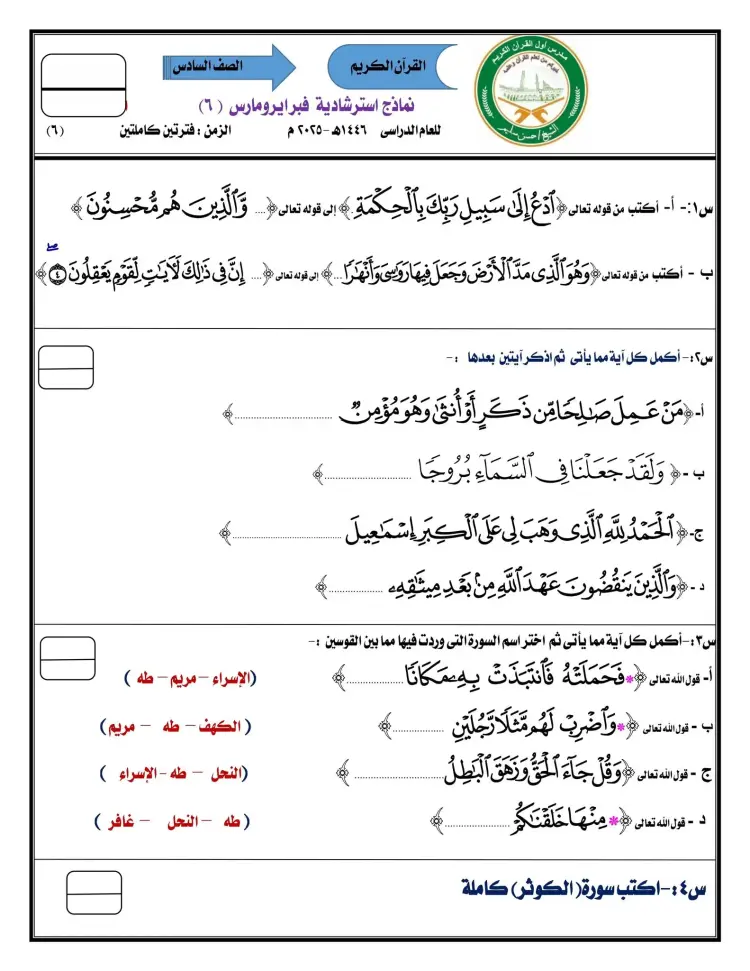 مدرس أول القرآن الكريم
خيركم من تعلم القرآن وعلمه
الشيخ/حسن سليم
القرآن الكريم
الصف السادس
نماذج استرشادية فبرايرومارس (٦)
للعام الدراسى ١٤٤٦هـ -٢٠٢٥ م الزمن : فترتين كاملتين (٦)
س١:- أ- أكتب من قوله تعالى ﴿ٱدۡعُ إِلَىٰ سَبِيلِ رَبِّكَ بِٱلۡحِكۡمَةِ.﴾ إلى قوله تعالى ﴿.... وَّٱلَّذِينَ هُم مُّحۡسِنُونَ﴾
ب - أكتب من قوله تعالى ﴿وَهُوَ ٱلَّذِى مَدَّ ٱلۡأَرۡضَ وَجَعَلَ فِيهَا رَوَٰسِىَ وَأَنۡهَٰرًا...﴾ إلى قوله تعالى ﴿.... إِنَّ فِى ذَٰلِكَ لَأٓيَٰتٍ لِّقَوۡمٍ يَعۡقِلُونَ ٤﴾
س٢:- أكمل كل آية مما يأتى ثم اذكر آيتين بعدها :-
أ-﴿مَنۡ عَمِلَ صَٰلِحًا مِّن ذَكَرٍ أَوۡ أُنثَىٰ وَهُوَ مُؤۡمِنٌ ..............................﴾
ب -﴿ وَلَقَدۡ جَعَلۡنَا فِى ٱلسَّمَآءِ بُرُوجًا ..............................﴾
ج-﴿ٱلۡحَمۡدُ لِلَّهِ ٱلَّذِى وَهَبَ لِى عَلَى ٱلۡكِبَرِ إِسۡمَٰعِيلَ ..............................﴾
د -﴿وَٱلَّذِينَ يَنقُضُونَ عَهۡدَ ٱللَّهِ مِنۢ بَعۡدِ مِيثَٰقِهِۦ ....................﴾
س٣:-أكمل كل آية مما يأتى ثم اختر اسم السورة التى وردت فيها مما بين القوسين :-
أ- قول الله تعالى ﴿*فَحَمَلَتۡهُ فَٱنتَبَذَتۡ بِهِۦ مَكَانًا....................﴾ (الإسراء – مريم – طه )
ب - قول الله تعالى ﴿*وَٱضۡرِبۡ لَهُم مَّثَلًا رَّجُلَيۡنِ ....................﴾ ( الكهف – طه – مريم)
ج - قول الله تعالى ﴿وَقُلۡ جَآءَ ٱلۡحَقُّ وَزَهَقَ ٱلۡبَٰطِلُ ..............................﴾ (النحل – طه - الإسراء )
د - قول الله تعالى ﴿* مِنۡهَا خَلَقۡنَٰكُمۡ....................﴾ ( طه – النحل – غافر )
س٤:-اكتب سورة(الكوثر) كاملة